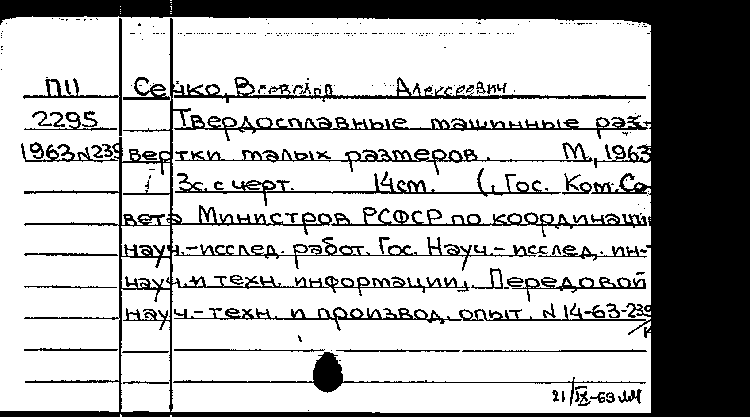 ПII Сейко, Всеволод Алексеевич
2295 Твердосплавные машинные раз-
1963 N239 вертки малых размеров. М., 1963
3с. с черт. 14см. (Гос. Ком. Со-
вета Министров РСФСР по координации
науч.-исслед. работ. Гос. Науч.-исслед. ин-т
науч. и техн. информации. Передовой
науч.-техн. и производ. опыт. N 14-63-239
21/IX-63